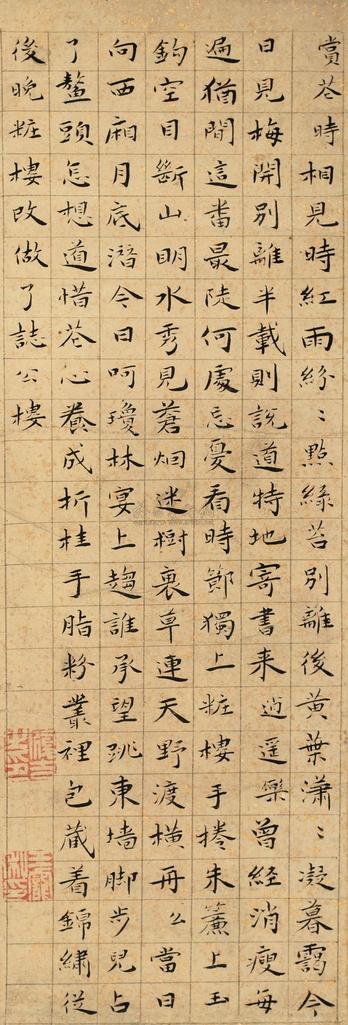 賞苍時相見時紅雨紛〻點緑苔別離後黄葉瀟〻凝暮靄今
日見梅開別離半載則說道特地寄書来逍遥樂曾經消瘦每
遍猶閒這畨最陡何處忘憂看時節獨上粧樓手捲朱簾上玉
鈎空目斷山明水秀見蒼烟迷樹衰草連天野渡橫舟么當日
向西廂月底潛今日呵瓊林宴上趨誰承望跳東墻脚步兒占
了鼇頭怎想道惜苍心養成折桂手脂粉叢裡包藏着錦繡從
後晚粧樓改做了誌公樓